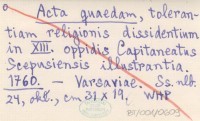 Acta quaedam, toleran-
tiam religionis dissidentium
in XIII. oppidis Capitaneatus
Scepusiensis illustrantia.
1760. — Varsaviae. Ss. nlb.
24, okt., cm 31 x 19, WHP